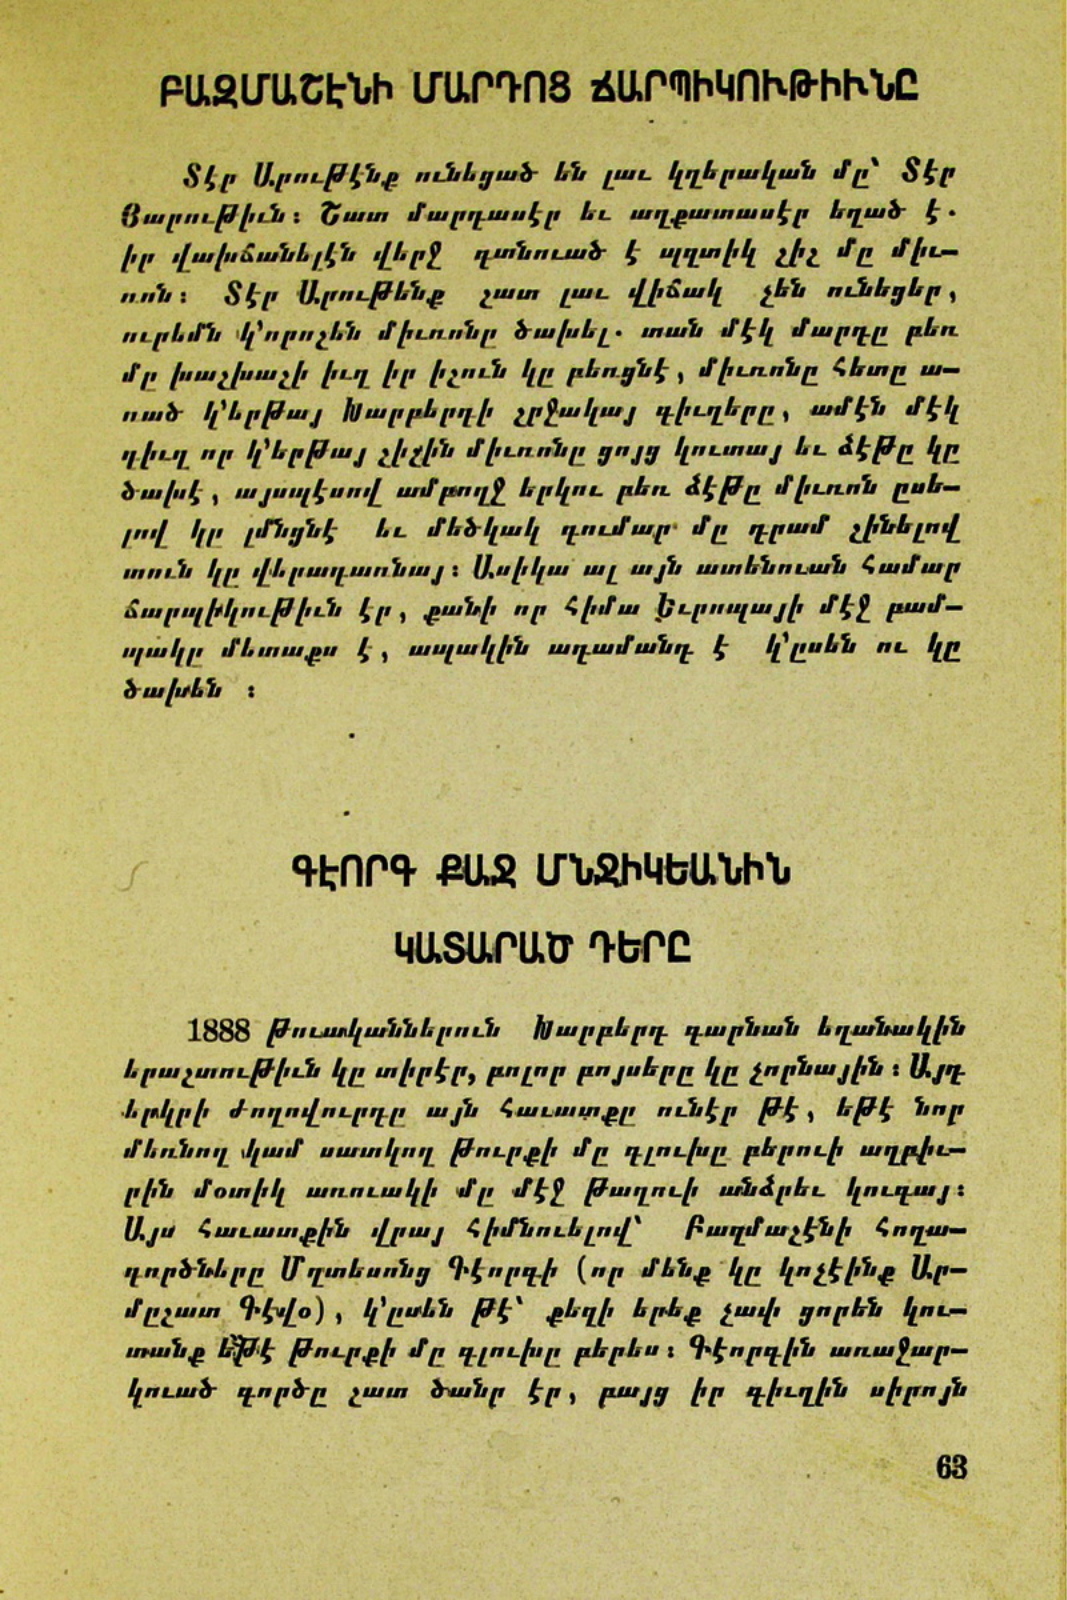 ԲԱԶՄԱՇԷՆԻ ՄԱՐԴՈՑ ՃԱՐՊԻԿՈՒԹԻՒՆԸ
Տէր Արութէնք ունեցած են լաւ կղերական մը՝ Տէր
Յարութիւն։ Շատ մարդասէր եւ աղքատասէր եղած է.
իր վախճանելէն վերջ գտնուած է պզտիկ շիշ մը միւ-
ռոն։ Տէր Արութենք շատ լաւ վիճակ չեն ունեցեր,
ուրեմն կ՚որոշեն միւռոնը ծախել. տան մէկ մարդը բեռ
մը խաշխաշի իւղ իր իշուն կը բեռցնէ, միւռոնը հետը ա-
ռած կ՚երթայ Խարբերդի շրջակայ գիւղերը, ամէն մէկ
գիւղ որ կ՚երթայ շիշին միւռոնը ցոյց կուտայ եւ ձէթը կը
ծախէ, այսպէսով ամբողջ երկու բեռ ձէթը միւռոն ըսե-
լով կը լմնցնէ եւ մեծկակ գումար մը դրամ շինելով
տուն կը վերադառնայ։ Ասիկա ալ այն ատենուան համար
ճարպիկութիւն էր, քանի որ հիմա Եւրոպայի մէջ բամ-
պակը մետաքս է, ապակին ադամանդ է կ՚ըսեն ու կը
ծախեն ։
ԳԷՈՐԳ ՔԱՋ ՄՆՋԻԿԵԱՆԻՆ
ԿԱՏԱՐԱԾ ԴԵՐԸ
1888 թուականներուն Խարբերդ գարնան եղանակին
երաշտութիւն կը տիրէր, բոլոր բոյսերը կը չորնային։ Այդ
երկրի ժողովուրդը այն հաւատքը ունէր թէ, եթէ նոր
մեռնող կամ սատկող թուրքի մը գլուխը բերուի աղբիւ-
րին մօտիկ առուակի մը մէջ թաղուի անձրեւ կուգայ։
Այս հաւատքին վրայ հիմնուելով՝ Բազմաշէնի հողա-
գործները Մղտեսոնց Գէորգի (որ մենք կը կոչէինք Ար-
մըշատ Գէվօ), կ՚ըսեն թէ՝ քեզի երեք չափ ցորեն կու-
տանք եթէ թուրքի մը գլուխը բերես։ Գէորգին առաջար-
կուած գործը շատ ծանր էր, բայց իր գիւղին սիրոյն
63